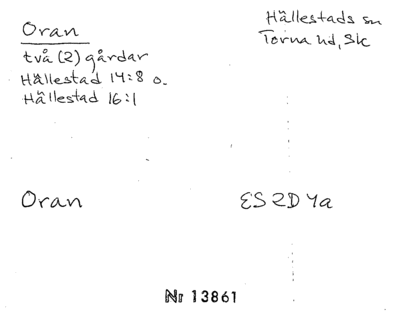 Oran
två (2) gårdar
Hällestad 14:8 o.
Hällestad 16:1
Hällestads sn
Torna hd, Sk
Oran
ES 2D 4a
Nr 13861